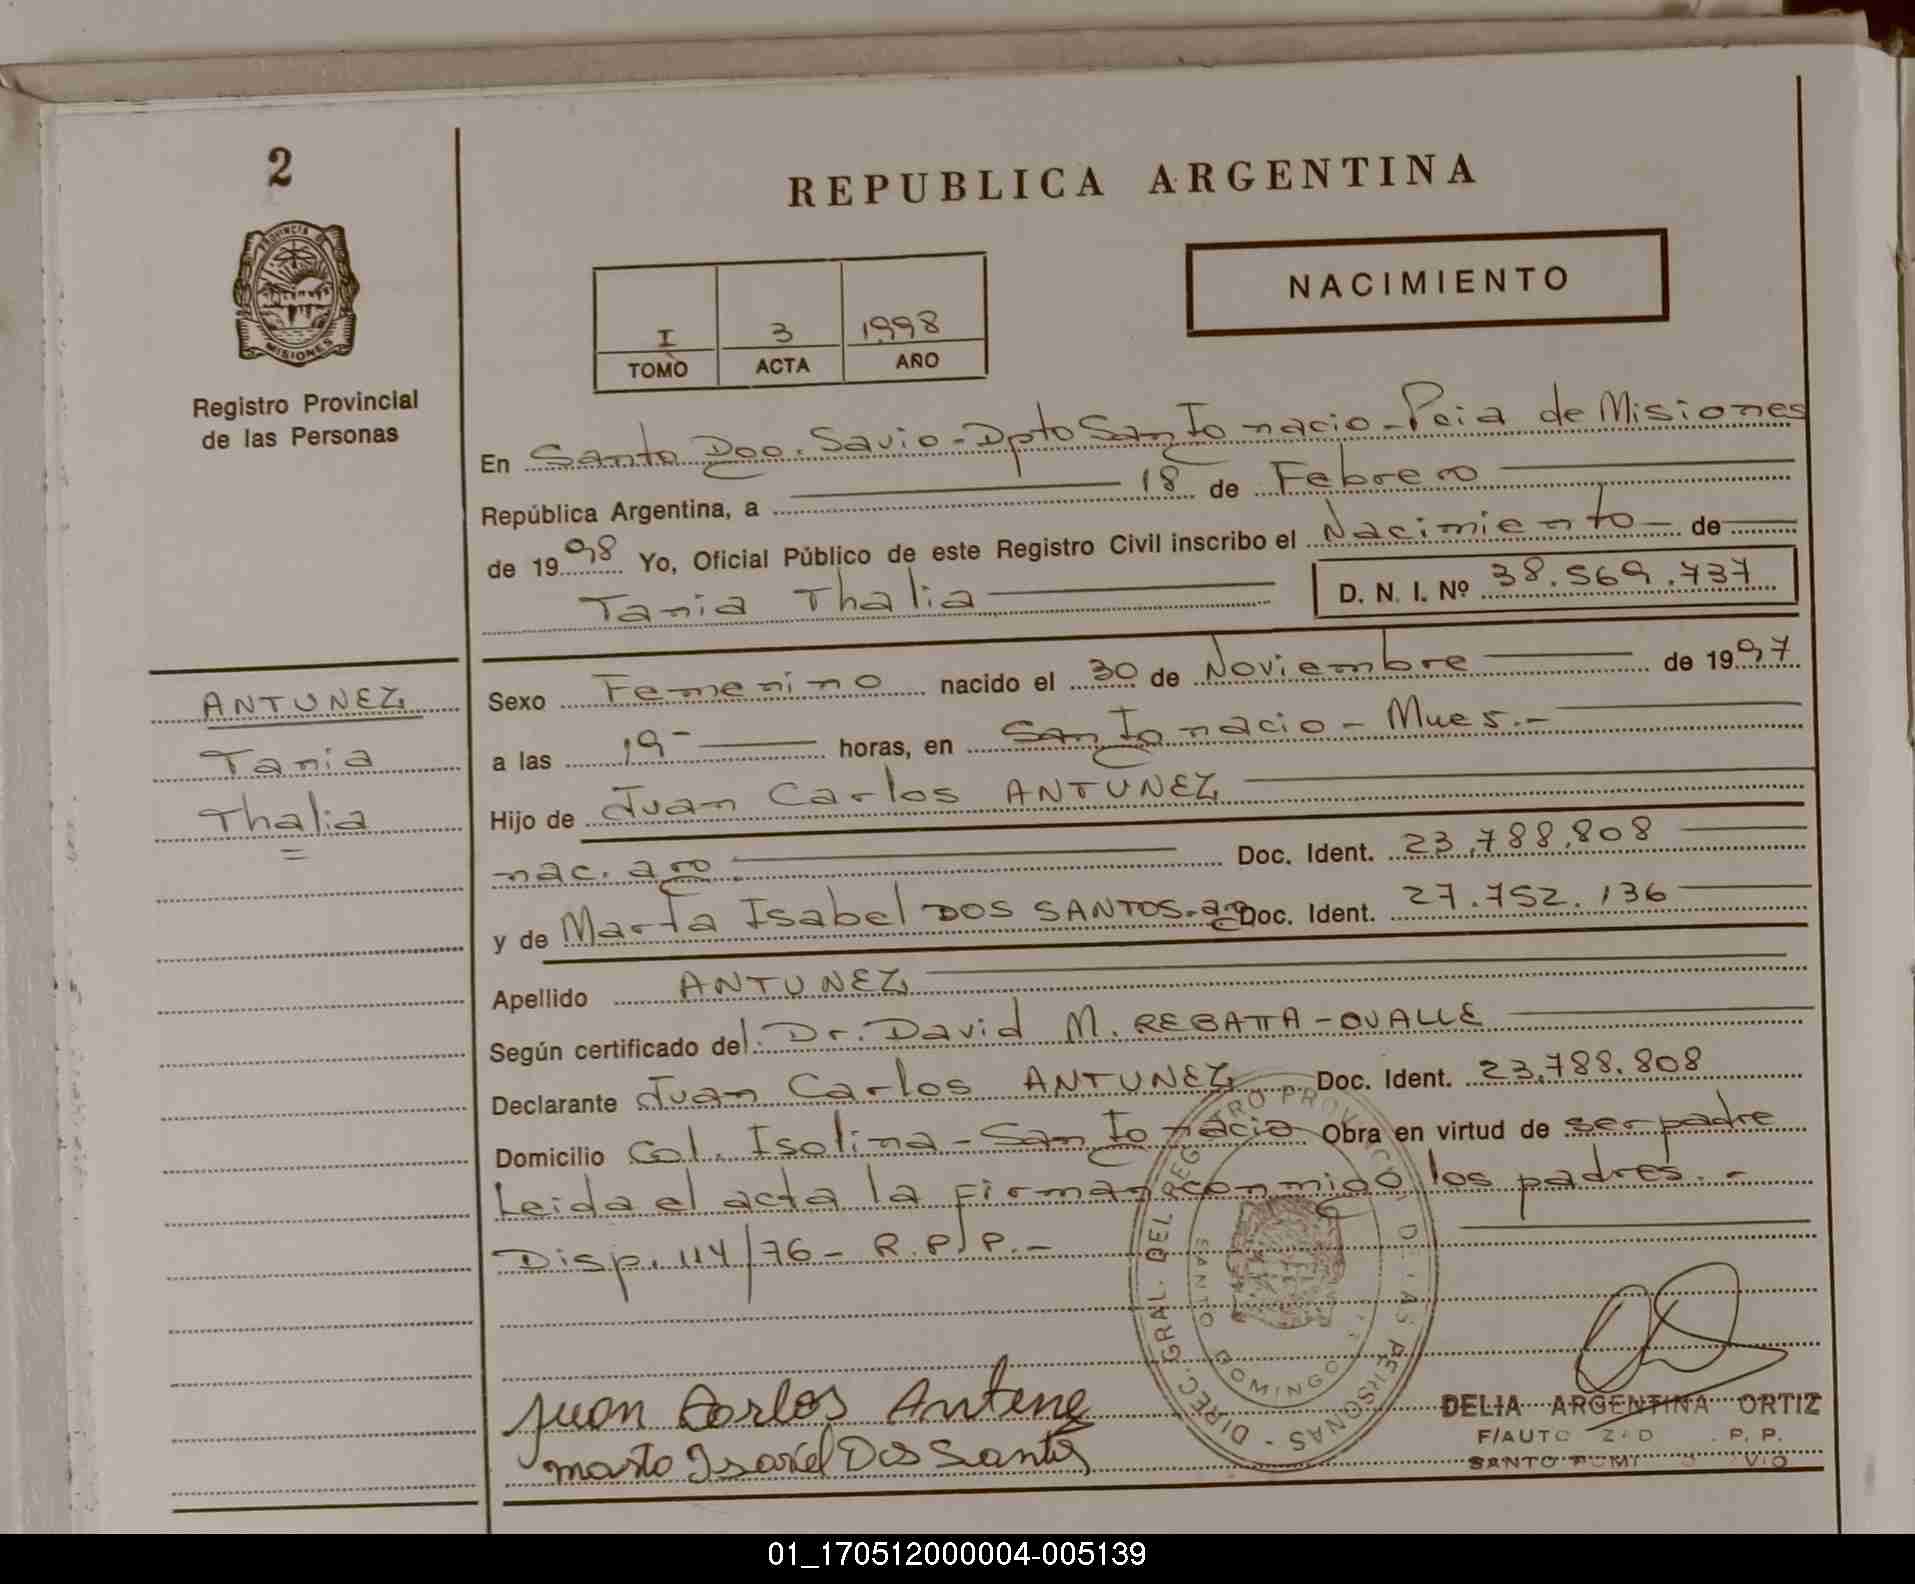 2
REPUBLICA ARGENTINA
PROVINCIA DE
MISIONES
NACIMIENTO
I 3 1998
TOMO ACTA AÑO
Registro Provincial
de las Personas
En Santo Dgo. Savio - Dpto San Ignacio - Pcia de Misiones
República Argentina, a 18 de Febrero
de 1998 Yo, Oficial Público de este Registro Civil inscribo el Nacimiento de
Tania Thalia D. N. I. Nº 38.569.737
ANTUNEZ
Tania
Thalia
Sexo Femenino nacido el 30 de Noviembre de 1997
a las 19- horas, en San Ignacio - Mnes.-
Hijo de Juan Carlos ANTUNEZ
nac. arg. Doc. Ident. 23.788.808
y de Marta Isabel DOS SANTOS-arg Doc. Ident. 27.752.136
Apellido ANTUNEZ
Según certificado del Dr. David M. REBATTA-OVALLE
Declarante Juan Carlos ANTUNEZ Doc. Ident. 23.788.808
Domicilio Col. Isolina - San Ignacio Obra en virtud de ser padre
Leida el acta la firman conmigo los padres.-
Disp. 114/76 - R.P.P.-
DIREC. GRAL. DEL REGISTRO PROVINCIAL DE LAS PERSONAS -
SANTO DOMINGO
Juan Carlos Antunez
Marta Isabel Dos Santos
DELIA ARGENTINA ORTIZ
F/AUTO P. P.
SANTO
01_170512000004-005139